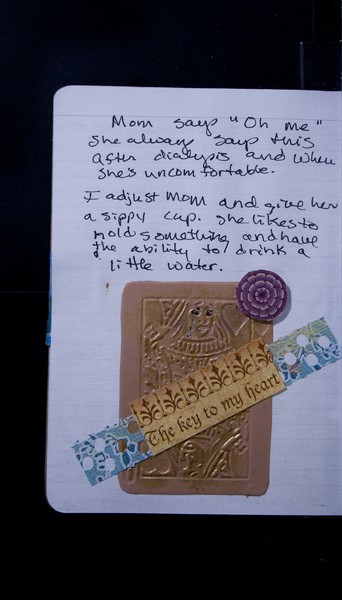 Mom says "Oh me"
She always says this
after dialysis and when
she's uncomfortable.
I adjust Mom and give her
a sippy cup. She likes to
hold something and have
the ability to drink a
little water.
The key to my heart